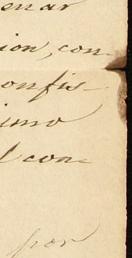 enar
ion, con-
onfis-
imo
l con-
por